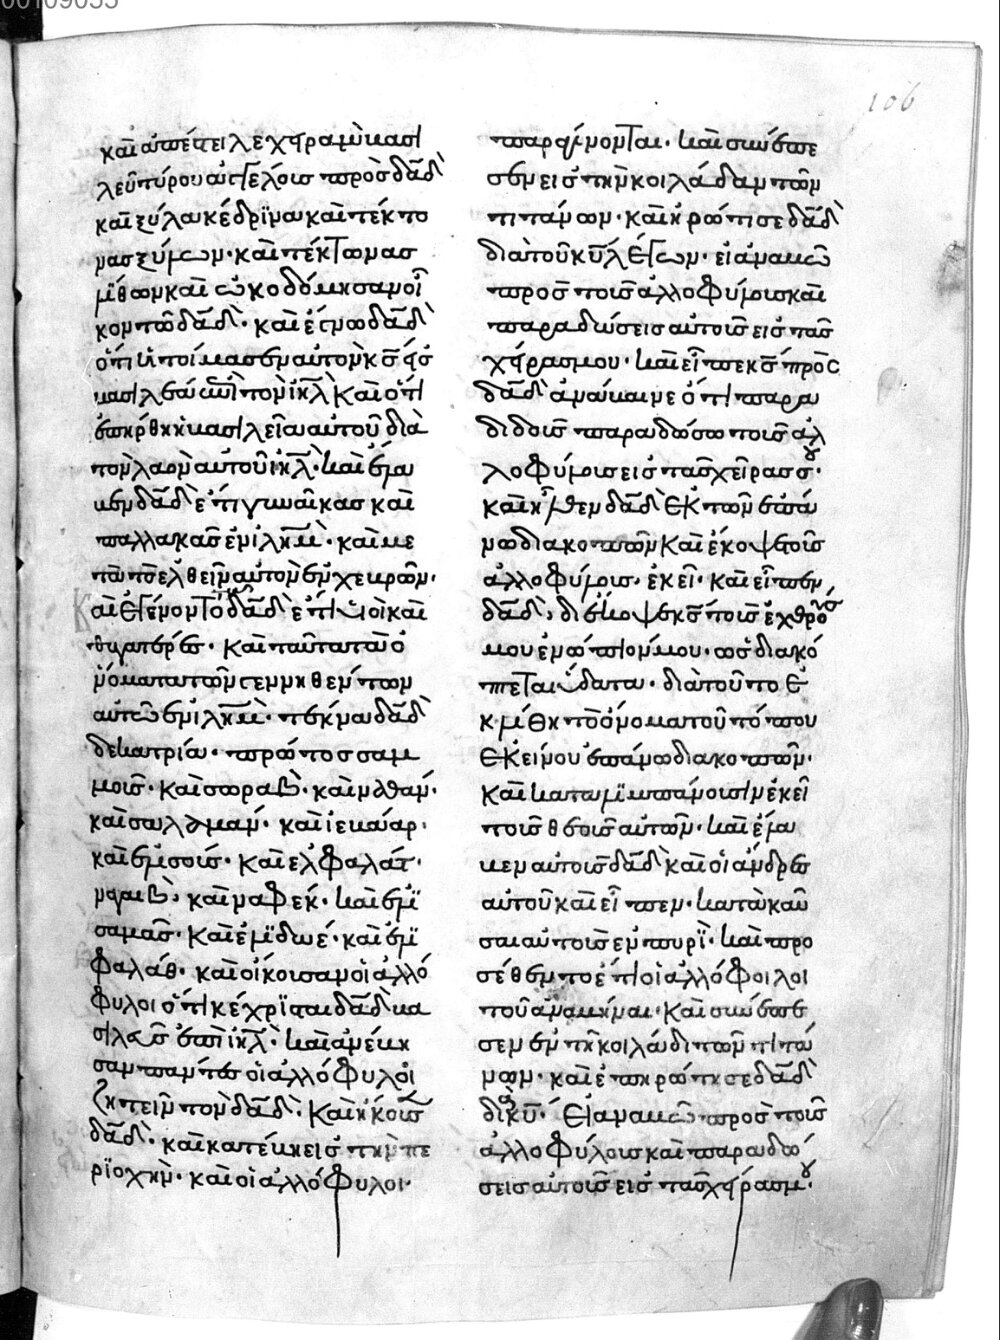 00109055
106
καὶ ἀπέστειλε χειρὰμ βασι
λεὺς τύρου ἀγγέλους πρὸς δᾱδ
καὶ ξύλα κέδρϊνα καὶ τέκτο
νας ξύλων· καὶ τέκτωνας
λίθων καὶ ὠκοδόμησαν οἶ
κον τῶ δᾱδ· καὶ ἔγνω δᾱδ
ὅτι ἡτοίμασεν αὐτὸν κ̄ς εἰς
βασιλέα ἐπὶ τὸν ιη̄λ καὶ ὅτι
ἐπήρθη ἡ βασιλεία αὐτοῦ διὰ
τὸν λαὸν αὐτοῦ ιη̄λ· καὶ ἔλα
βεν δᾱδ ἔτι γυναῖκας καὶ
παλλακὰς ἐν ιλη̄μ· καὶ με
τὰ τὸ ἐλθεῖν αὐτὸν ἐκ χεβρών·
καὶ ἐγένοντο δᾱδ ἔτι υἱοὶ καὶ
θυγατέρες· καὶ ταῦτα τὰ ὀ
νόματα τῶν γεννηθέντων
αὐτῶ ἐν ιλη̄μ· τέκνα δᾱδ
δεκατρία· πρῶτος σαμ
μοῦς· καὶ σωβαβ· καὶ ναθάν·
καὶ σαλομών· καὶ ἰεβαάρ·
καὶ ἐλισοῦς· καὶ ελφαλάτ·
ναγεβ· καὶ ναφεκ· καὶ ἐλϊ
σαμᾶς· καὶ ελϊδωέ· καὶ ελϊ
φαλάθ· καὶ οἱ ἤκουσαν οἱ ἀλλό
φυλοι ὅτι κέχρϊσται δᾱδ βα
σιλεὺς ἐπὶ ιη̄λ· καὶ ἀνέβη
σαν πάντες οἱ ἀλλόφυλοι
ζητεῖν τὸν δᾱδ· καὶ ἤκουσε
δᾱδ· καὶ κατέβη εἰς τὴν πε
ρϊοχήν· καὶ οἱ ἀλλόφυλοι·
παραγίνονται· καὶ συνέπε
σεν εἰς τὴν κοιλάδα τῶν
τιτάνων· καὶ ἠρώτησε δᾱδ
διὰ τοῦ κ̄υ λέγων· εἰ ἀναβῶ
πρὸς τοὺς ἀλλοφύλους καὶ
παραδώσεις αὐτοὺς εἰς τὰς
χεῖρας μου· καὶ εἶπε κ̄ς πρὸς
δᾱδ ἀνάβαινε ὅτι παρα
διδοὺς παραδώσω τοὺς ἀλ
λοφύλους εἰς τὰς χεῖρας σου·
καὶ ἦλθεν δᾱδ ἐκ τῶν ἐπά
νω διακοπῶν καὶ ἔκοψε τοὺς
ἀλλοφύλους· ἐκεῖ· καὶ εἶπεν
δᾱδ· διέκοψε κ̄ς τοὺς ἐχθρούς
μου ἐνώπιόν μου· ὡς διακό
πτεται ὕδατα· διὰ τοῦτο ἐ
κλήθη τὸ ὄνομα τοῦ τόπου
ἐκείνου ἐπάνω διακοπῶν·
καὶ καταλϊμπάνουσιν ἐκεῖ
τοὺς θεοὺς αὐτῶν· καὶ ἔλα
βεν αὐτοὺς δᾱδ καὶ οἱ ἄνδρες
αὐτοῦ καὶ εἶπεν· κατακαῦ
σαι αὐτοὺς ἐν πυρΐ· καὶ προ
σέθεντο ἔτι οἱ ἀλλόφυλοι
τοῦ ἀναβῆναι· καὶ συνέπε
σεν ἐν τῆ κοιλάδι τῶν τιτά
νων· καὶ ἐπηρώτησε δᾱδ
διὰ κ̄υ· εἰ ἀναβῶ πρὸς τοὺς
ἀλλοφύλους καὶ παραδώ
σεις αὐτοὺς εἰς τὰς χεῖρας μου·